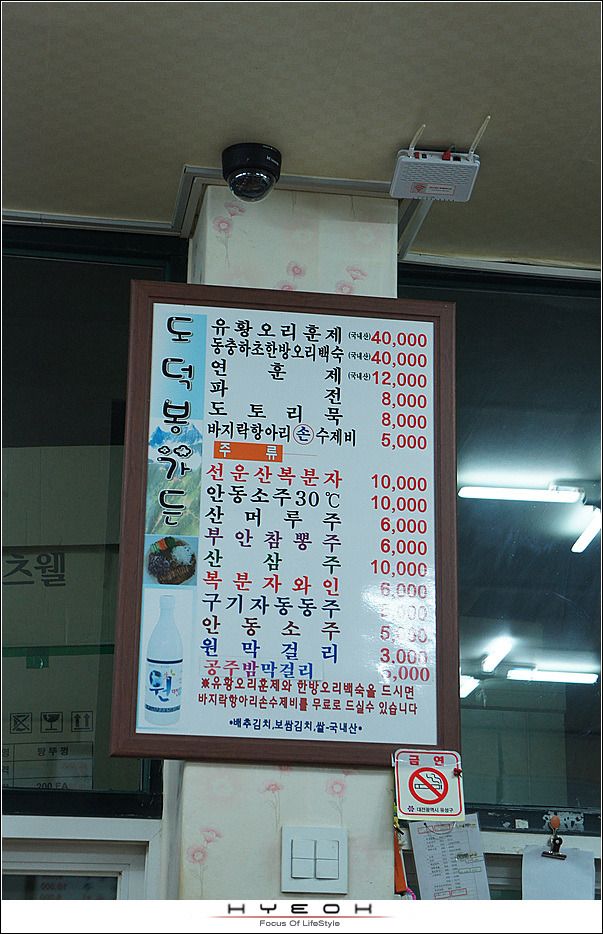 도덕봉가든
유황오리훈제 (국내산) 40,000
동충하초한방오리백숙 (국내산) 40,000
연훈제 (국내산) 12,000
파전 8,000
도토리묵 8,000
바지락항아리 손 수제비 5,000
주류
선운산복분자 10,000
안동소주30℃ 10,000
산머루주 6,000
부안참뽕주 6,000
산삼주 10,000
복분자와인 6,000
구기자동동주
안동소주 5,000
원막걸리 3,000
공주밤막걸리 3,000
※유황오리훈제와 한방오리백숙을 드시면
바지락항아리손수제비를 무료로 드실수 있습니다
•배추김치,보쌈김치,쌀-국내산•
원
츠웰
탕뚜평
200 EA
금연
대전광역시 유성구
HYEOH
Focus Of LifeStyle